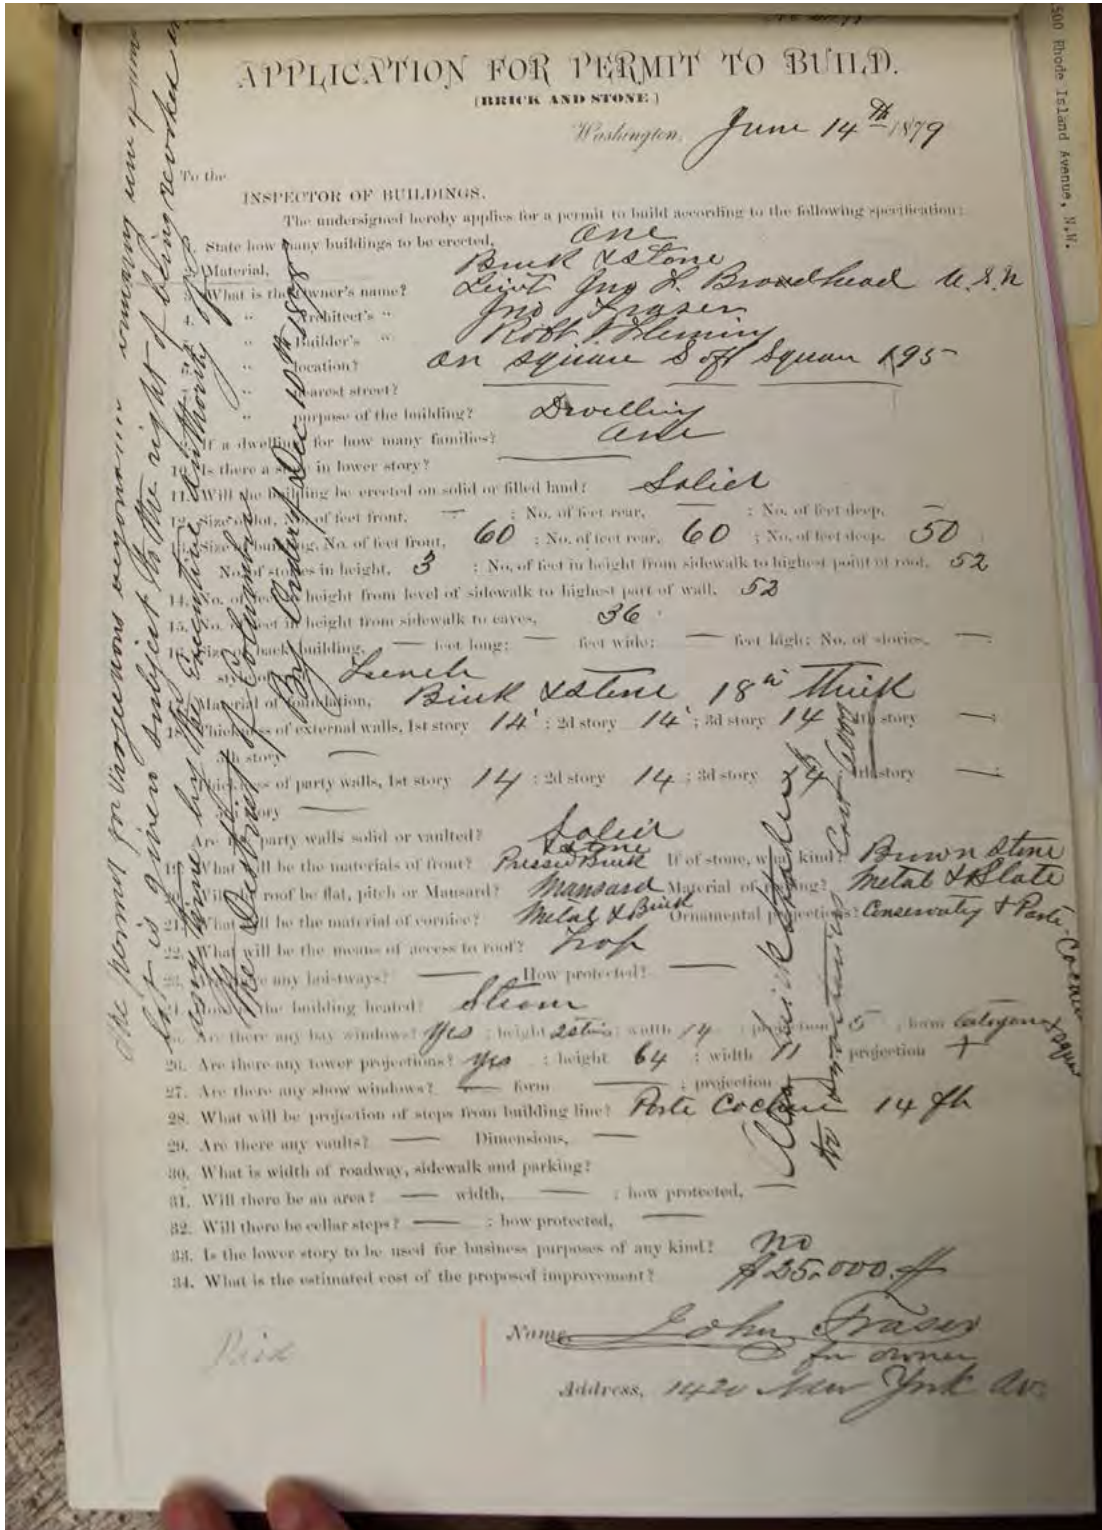 500 Rhode Island Avenue, N.W.
APPLICATION FOR PERMIT TO BUILD.
(BRICK AND STONE)
Washington, June 14th 1879
To the
INSPECTOR OF BUILDINGS.
The undersigned hereby applies for a permit to build according to the following specification:
State how many buildings to be erected, One
Material, Brick & Stone
What is the Owner's name? Lieut Jno L. Broadhead U.S.N
4. " Architect's " Jno Fraser
" Builder's " Robt. I. Fleming
" location? on square S of Square 195
" nearest street?
" purpose of the building? Dwelling
If a dwelling for how many families? One
10. Is there a store in lower story?
11. Will the building be erected on solid or filled land? Solid
12. Size of lot, No. of feet front, — ; No. of feet rear, — ; No. of feet deep, —
Size of building, No. of feet front, 60 ; No. of feet rear, 60 ; No. of feet deep, 50
No. of stories in height, 3 ; No. of feet in height from sidewalk to highest point of roof, 52
14. No. of feet in height from level of sidewalk to highest part of wall, 52
15. No. of feet in height from sidewalk to eaves, 36
Size of back building, — feet long; — feet wide; — feet high; No. of stories, —
Material of foundation, Brick & Stone 18 in thick
Thickness of external walls, 1st story 14 ; 2d story 14 ; 3d story 14 4th story —
5th story —
Thickness of party walls, 1st story 14 ; 2d story 14 ; 3d story 14 4th story —
story —
Are the party walls solid or vaulted? Solid
What will be the materials of front? Pressed Brick & Stone If of stone, what kind? Brown Stone
Will the roof be flat, pitch or Mansard? Mansard Material of roofing? Metal & Slate
21. What will be the material of cornice? Metal & Brick Ornamental projections? Conservatory & Porte-Cochere
22. What will be the means of access to roof? Trap
23. Are there any hoistways? — How protected? —
the building heated? Steam
Are there any bay windows? Yes ; height 2 stories width 14 ; projection 5 ; form Octogonal & Square
26. Are there any tower projections? yes ; height 64 ; width 11 projection
27. Are there any show windows? — form — ; projection
28. What will be projection of steps from building line? Porte Cochere 14 ft
29. Are there any vaults? — Dimensions, —
30. What is width of roadway, sidewalk and parking?
31. Will there be an area? — width, — ; how protected, —
32. Will there be cellar steps? — ; how protected, —
33. Is the lower story to be used for business purposes of any kind? no
34. What is the estimated cost of the proposed improvement? $25.000.
Name, John Fraser
for owner
Address, 1420 New York Av.
Paid
The permit for projections beyond
lot is given subject to the right of being revoked
any time by the Executive authority of
the District of Columbia
By Order of Dec 10th
Also brick stable